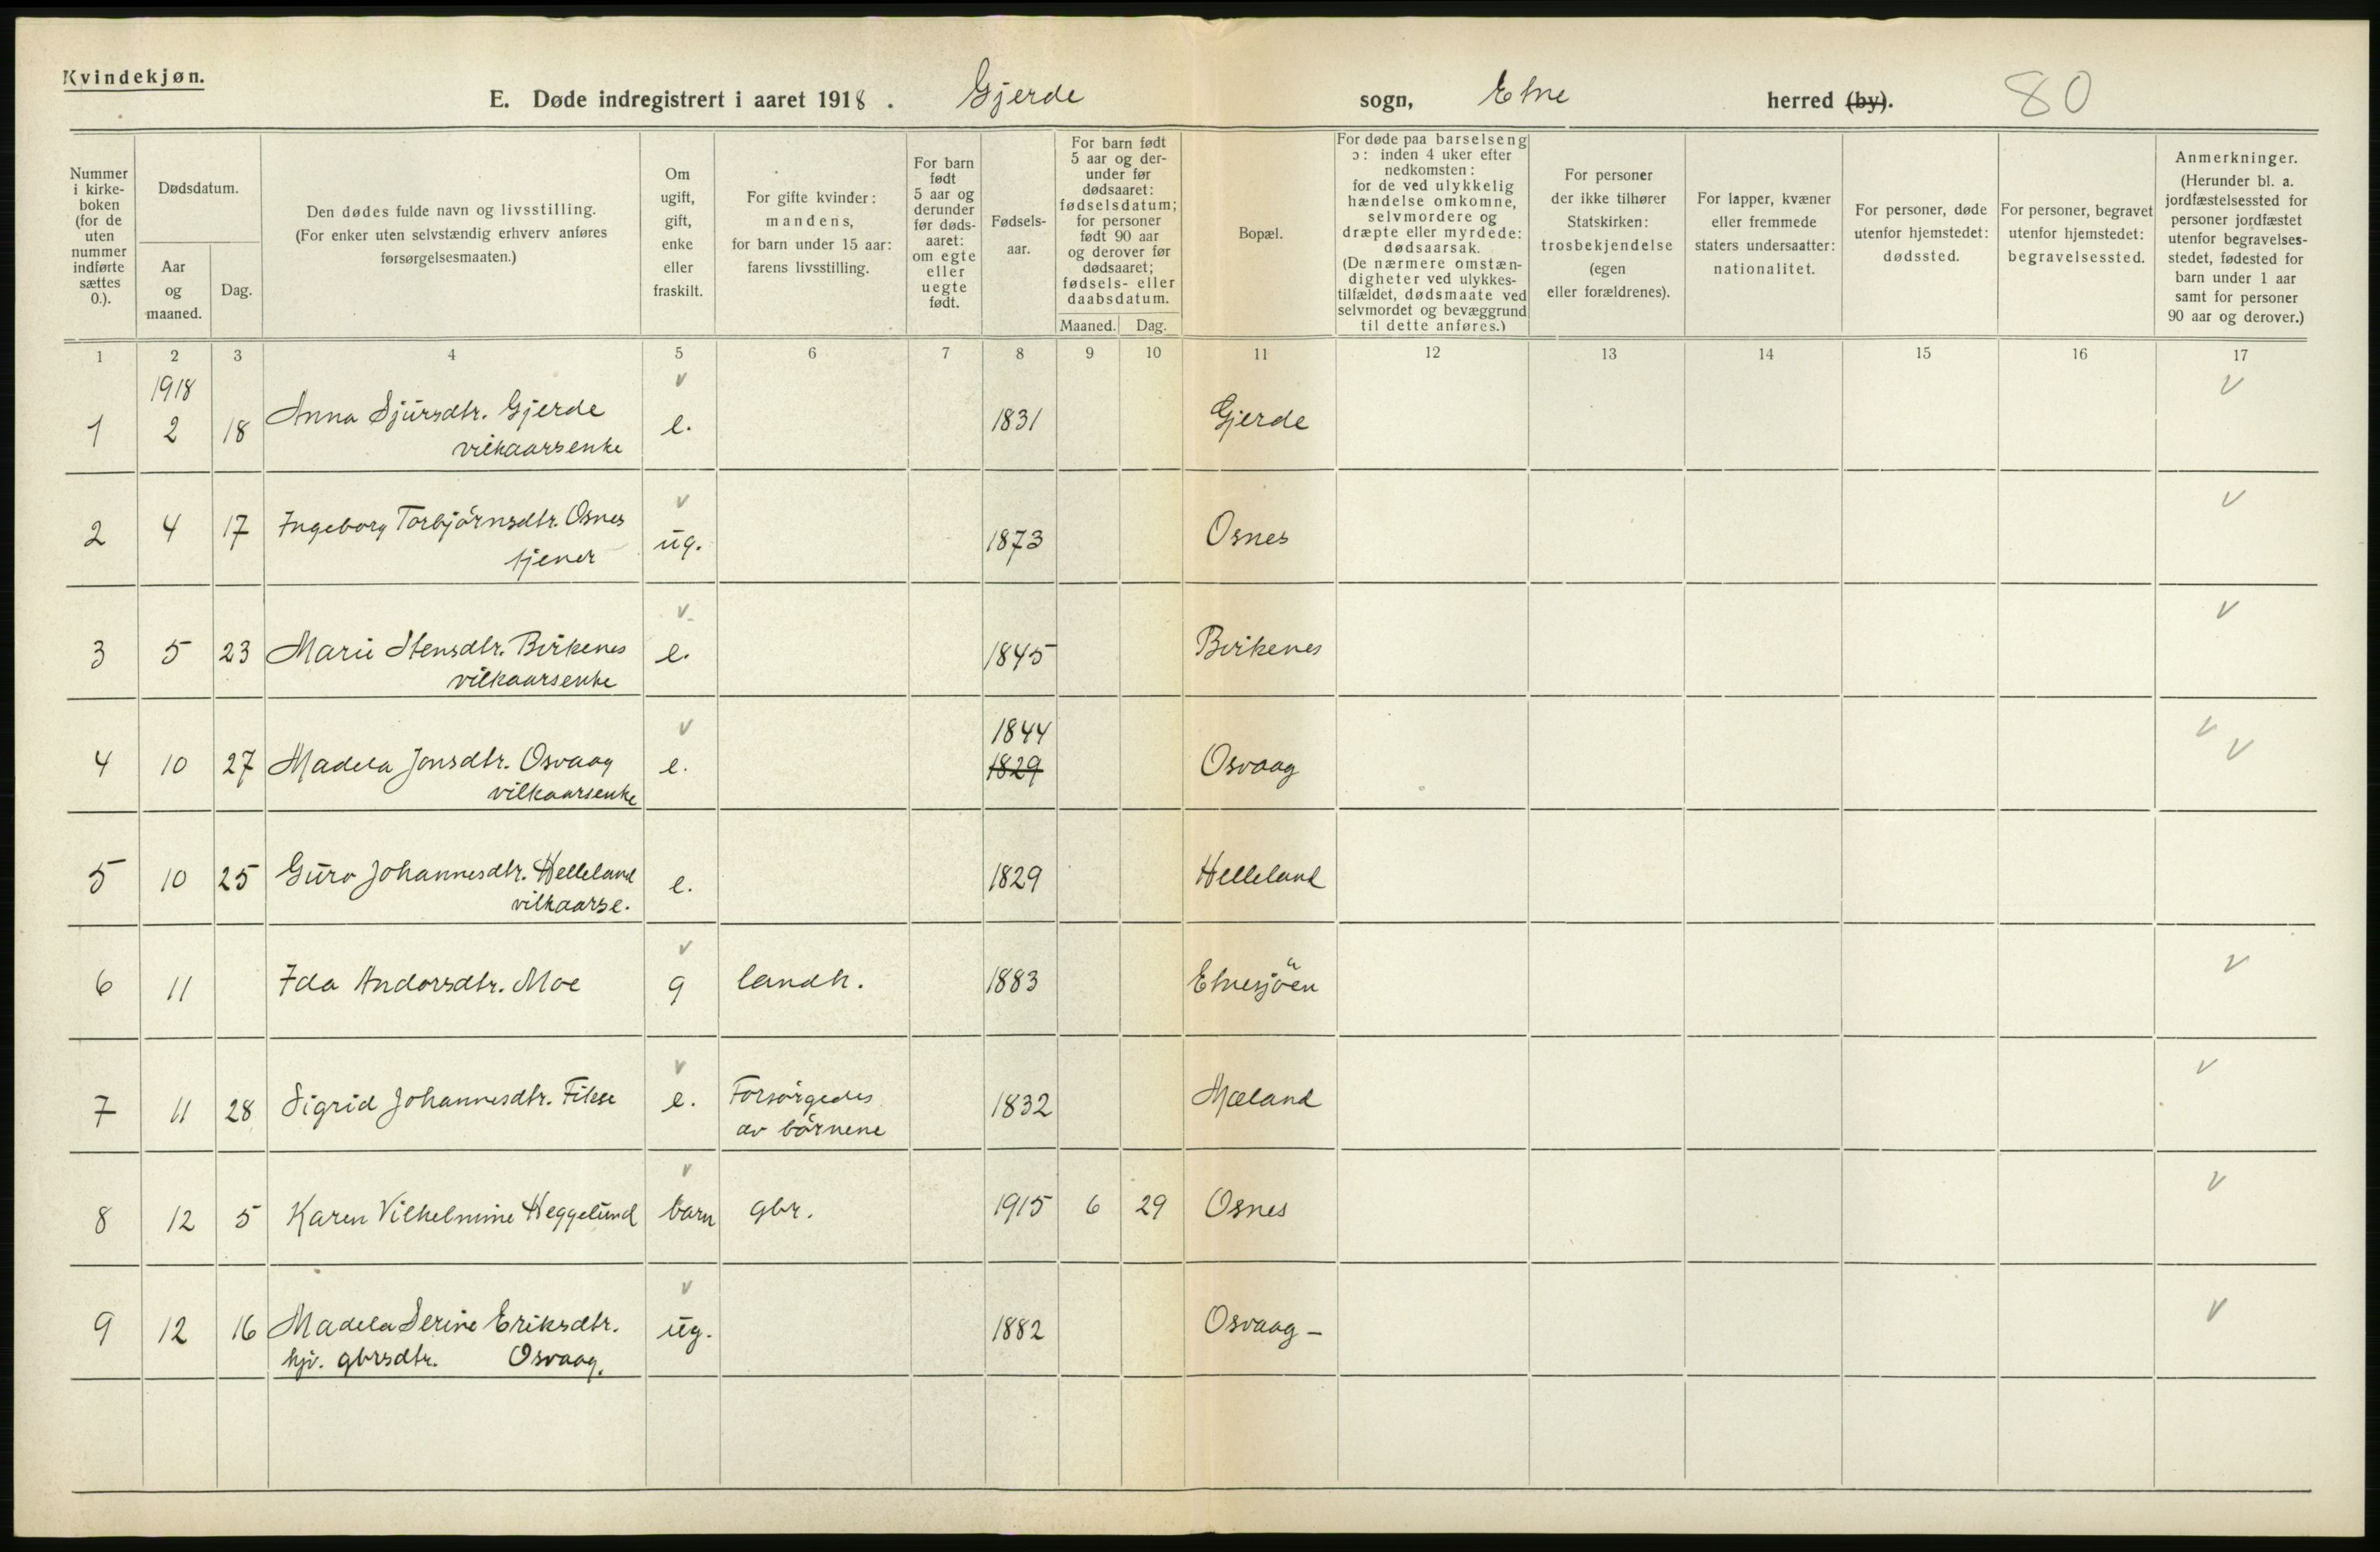 Kvindekjøn.
E. Døde indregistrert i aaret 1918. Gjerde sogn, Etne herred (by). 80
Nummer i kirke-boken (for de uten nummer indførte sættes 0.).
Dødsdatum.
Aar og maaned.
Dag.
Den dødes fulde navn og livsstilling.
(For enker uten selvstændig erhverv anføres
forsørgelsesmaaten.)
Om ugift, gift, enke eller fraskilt.
For gifte kvinder:
mandens,
for barn under 15 aar:
farens livsstilling.
For barn født 5 aar og derunder før døds-aaret: om egte eller uegte født.
Fødsels-aar.
For barn født 5 aar og der-under før dødsaaret: fødselsdatum; for personer født 90 aar og derover før dødsaaret; fødsels- eller daabsdatum.
Maaned. Dag.
Bopæl.
For døde paa barselseng
ɔ: inden 4 uker efter
nedkomsten:
for de ved ulykkelig
hændelse omkomne,
selvmordere og
dræpte eller myrdede:
dødsaarsak.
(De nærmere omstæn-
digheter ved ulykkes-
tilfældet, dødsmaate ved
selvmordet og bevæggrund
til dette anføres.)
For personer
der ikke tilhører
Statskirken:
trosbekjendelse
(egen
eller forældrenes).
For lapper, kvæner
eller fremmede
staters undersaatter:
nationalitet.
For personer, døde
utenfor hjemstedet:
dødssted.
For personer, begravet
utenfor hjemstedet:
begravelsessted.
Anmerkninger.
(Herunder bl. a.
jordfæstelsessted for
personer jordfæstet
utenfor begravelses-
stedet, fødested for
barn under 1 aar
samt for personer
90 aar og derover.)
1 2 3 4 5 6 7 8 9 10 11 12 13 14 15 16 17
1918 v v
1 2 18 Anna Sjursdtr. Gjerde e. 1831 Gjerde
vilkaarsenke
v v
2 4 17 Ingeborg Torbjörnsdtr. Osnes ug. 1873 Osnes
tjener
v v
3 5 23 Marie Stensdtr. Birkenes e. 1845 Birkenes
vilkaarsenke
v 1844 v
4 10 27 Madela Jonsdtr. Osvaag e. 1829 Osvaag v
vilkaarsenke
5 10 25 Guro Johannesdtr. Helleland e. 1829 Helleland
vilkaarse.
v v
6 11 Ida Andorsdtr. Moe g landh. 1883 Etnesjöen
v v
7 11 28 Sigrid Johannesdtr. Fikse e. Forsörgedes 1832 Mæland
av börnene
v v
8 12 5 Karen Vilhelmine Heggelund barn gbr. 1915 6 29 Osnes
v v
9 12 16 Madela Serine Eriksdtr. ug. 1882 Osvaag –
hjv. gbrsdtr. Osvaag.